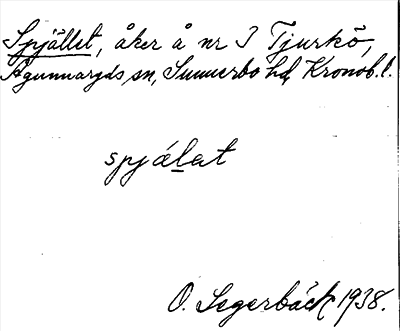 Spjället, åker å nr 3 Tjurkö,
Agunnaryds sn, Sunnerbo hd, Kronob. l.
spjálat
O. Segerbäck 1938.